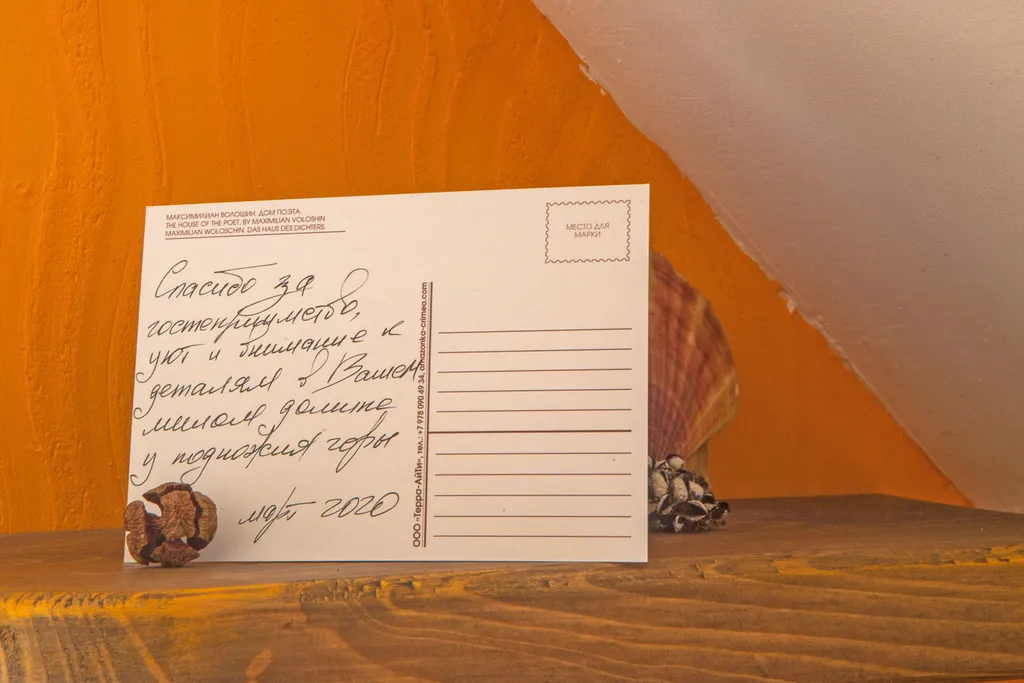 МАКСИМИЛИАН ВОЛОШИН. ДОМ ПОЭТА.
THE HOUSE OF THE POET, BY MAXIMILIAN VOLOSHIN
MAXIMILIAN WOLOSCHIN. DAS HAUS DES DICHTERS.
МЕСТО ДЛЯ
МАРКИ
Спасибо за
гостеприимство,
уют и внимание к
деталям в Вашем
милом домике
у подножия горы
март 2020
ООО «Терра-АйТи», тел.: +7 978 090 49 34, amazonka-crimea.com